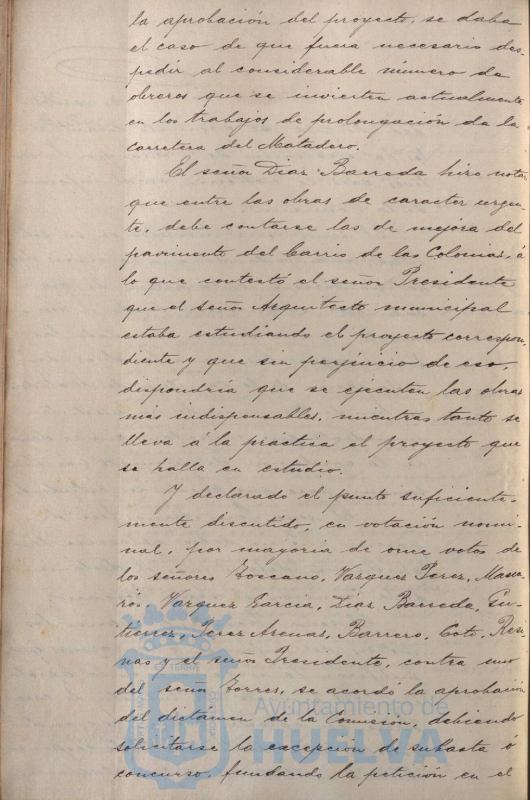 la aprobación del proyecto, se daba
el caso de que fuera necesario des-
pedir al considerable número de
obreros que se invierten actualmente
en los trabajos de prolongación de la
carretera del Matadero.
El señor Diaz Barreda hizo notar
que entre las obras de caracter urgen-
te, debe contarse las de mejora del
pavimento del barrio de las Colonias, á
lo que contestó el señor Presidente
que el señor Arquitecto municipal
estaba estudiando el proyecto correspon-
diente y que sin perjuicio de eso,
dispondría que se ejecuten las obras
más indispensables, mientras tanto se
lleva á la práctica el proyecto que
se halla en estudio.
Y declarado el punto suficiente-
mente discutido, en votación nomi-
nal, por mayoria de once votos de
los señores Toscano, Vazquez Perez,
rós, Vazquez Garcia, Diaz Barreda, Gu-
tierrez, Perez Arenas, Barrero, Coto, Resi-
nas y el señor Presidente, contra uno
del señor Torres, se acordó la aprobación
del dictamen de la Comisión, debiendo
solicitarse la excepcion de subasta ó
concurso, fundando la petición en el
Ayuntamiento de
HUELVA